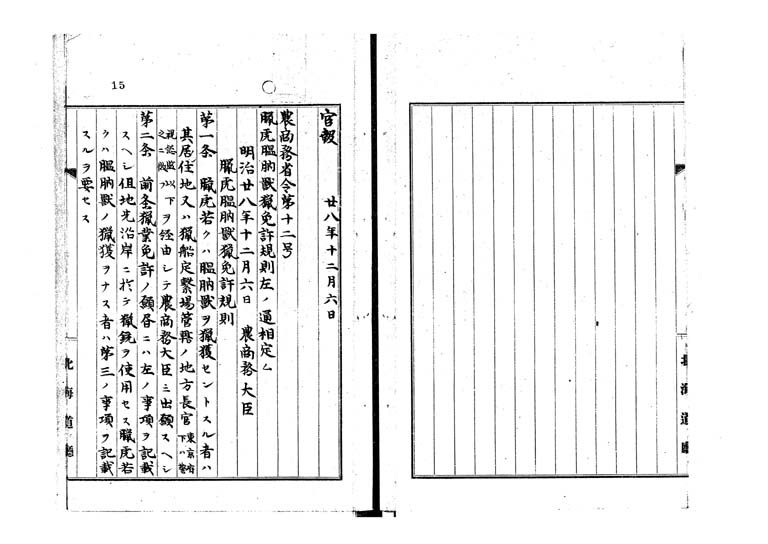 15
官報　廿八年十二月六日
農商務省令第十二号
臘虎膃肭獣猟免許規則左ノ通相定ム
明治廿八年十二月六日　農商務大臣
臘虎膃肭獣猟免許規則
第一条　臘虎若クハ膃肭獣ヲ猟獲セントスル者ハ
其居住地又ハ猟船定繋場管轄ノ地方長官東京府下ハ警
視総監以下之ニ傚フヲ経由シテ農商務大臣ニ出願スヘシ
第二条　前条猟業免許ノ願書ニハ左ノ事項ヲ記載
スヘシ但地先沿岸ニ於テ猟銃ヲ使用セス臘虎若
クハ膃肭獣ノ猟獲ヲナス者ハ第三ノ事項ヲ記載
スルヲ要セス
北海道廳
北海道廳